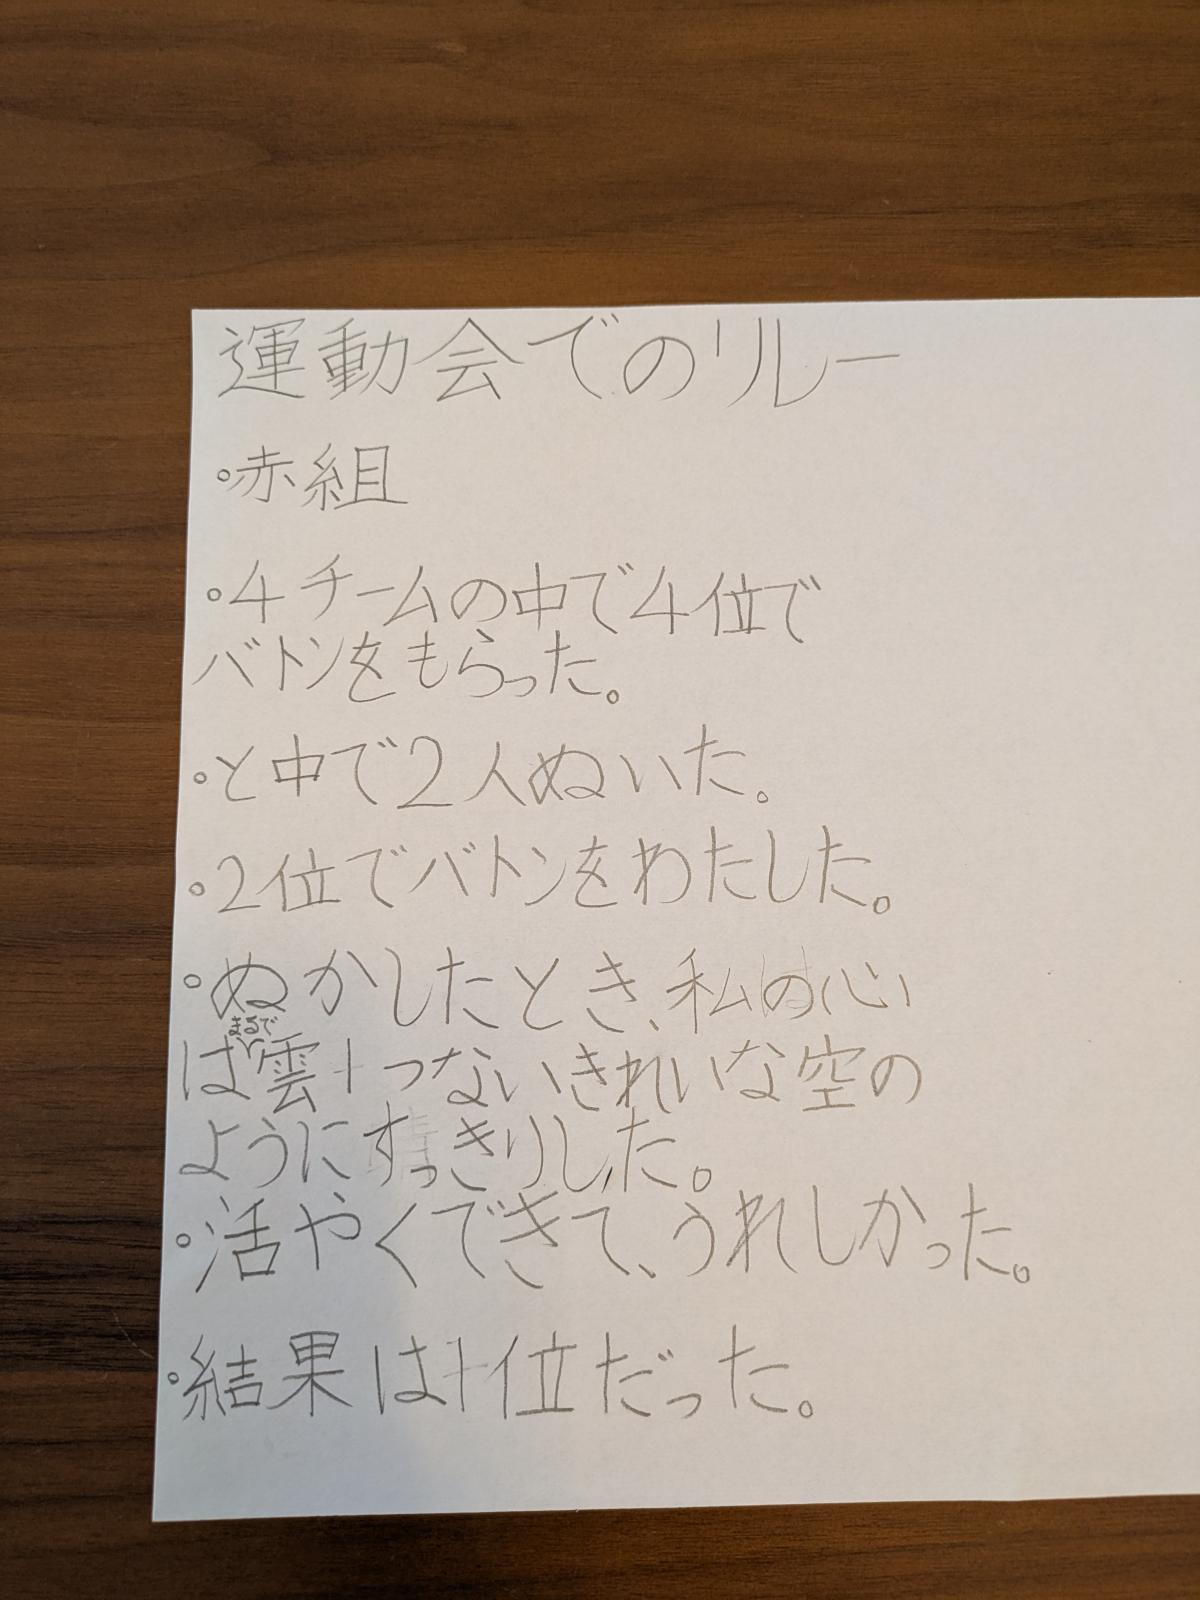 運動会でのリレー
・赤組
・4チームの中で4位で
バトンをもらった。
・と中で2人ぬいた。
・2位でバトンをわたした。
・ぬかしたとき、私の心
まるで
は雲1つないきれいな空の
ようにすっきりした。
・活やくできて、うれしかった。
・結果は1位だった。